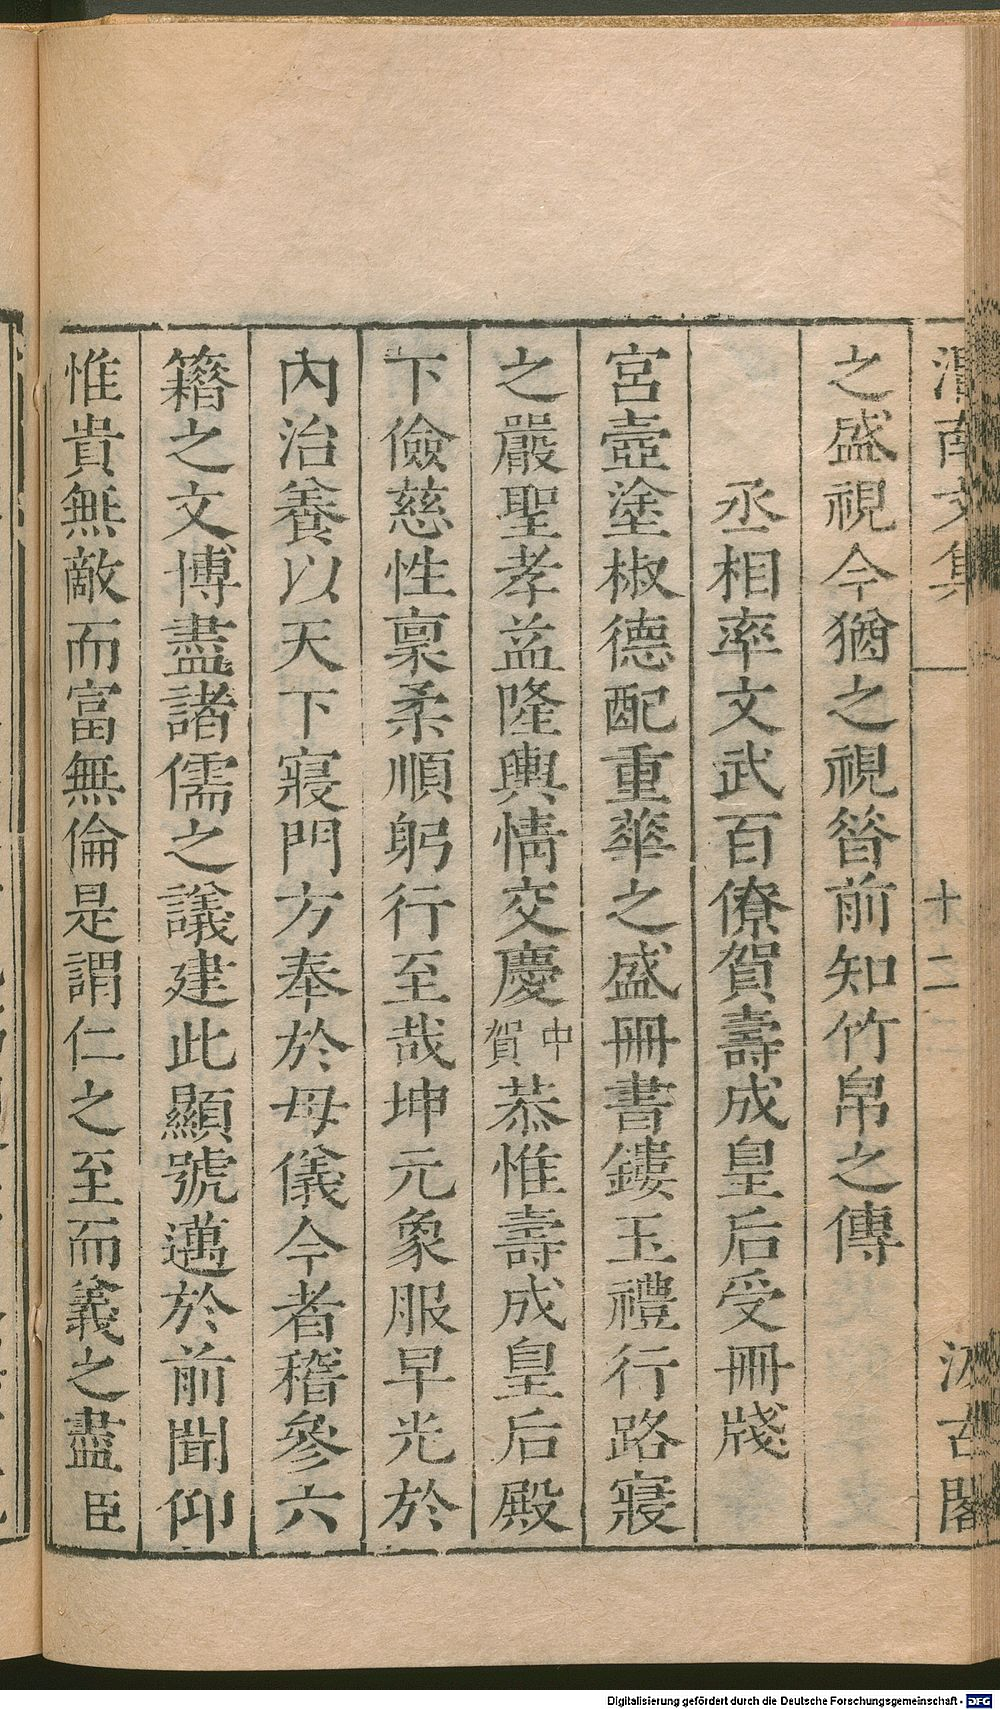 渭南文集 十二 汲古閣
之盛視今猶之視昝前知竹帛之傳
丞相率文武百僚賀壽成皇后受冊牋
宮壼塗椒德配重華之盛冊書鏤玉禮行路寢
之嚴聖孝益隆輿情交慶中賀恭惟壽成皇后殿
下儉慈性稟柔順躬行至哉坤元象服早光於
內治養以天下寢門方奉於母儀今者稽參六
籍之文博盡諸儒之議建此顯號邁於前聞仰
惟貴無敵而富無倫是謂仁之至而義之盡臣
Digitalisierung gefördert durch die Deutsche Forschungsgemeinschaft - DFG